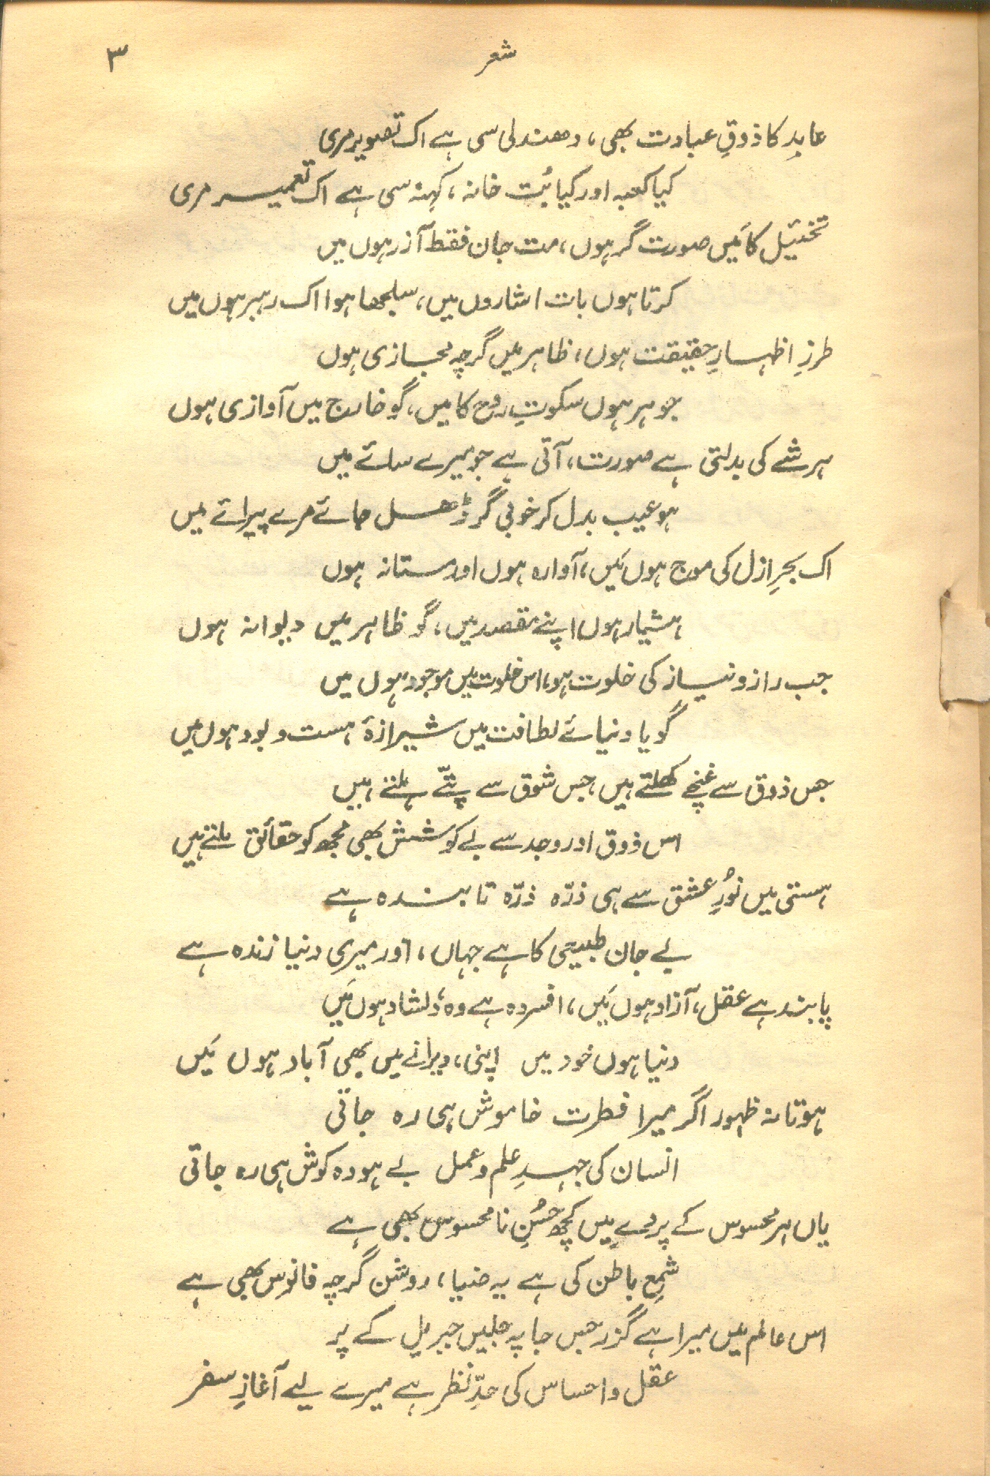 شعر
۳
عابد کا ذوقِ عبادت بھی، دھندلی سی ہے اک تصویر مری
کیا کعبہ اور کیا بُت خانہ، کہنہ سی ہے اک تعمیر مری
تخئیل کا مَیں صورت گر ہوں، مت جان فقط آزر ہوں میں
کرتا ہوں بات اشاروں میں، سلجھا ہوا اک رہبر ہوں میں
طرزِ اظہارِ حقیقت ہوں، ظاہر میں گرچہ مجازی ہوں
جوہر ہوں سکوتِ روح کا میں، گو خارج میں آوازی ہوں
ہر شے کی بدلتی ہے صورت، آتی ہے جو میرے سائے میں
ہو عیب بدل کر خوبی گر ڈھل جائے مرے پیرائے میں
اک بحرِ ازل کی موج ہوں مَیں، آوارہ ہوں اور مستانہ ہوں
ہشیار ہوں اپنے مقصد میں، گو ظاہر میں دیوانہ ہوں
جب راز و نیاز کی خلوت ہو، اس خلوت میں موجود ہوں میں
گویا دنیائے لطافت میں شیرازۂ ہست و بود ہوں میں
جس ذوق سے غنچے کھلتے ہیں، جس شوق سے پتّے ہلتے ہیں
اس ذوق اور وجد سے بے کوشش بھی مجھ کو حقائق ملتے ہیں
ہستی میں نُورِ عشق سے ہی ذرّہ ذرّہ تابندہ ہے
بے جان طبیعی کا ہے جہاں، اور میری دنیا زندہ ہے
پابند ہے عقل، آزاد ہوں مَیں، افسردہ ہے وہ، دلشاد ہوں مَیں
دنیا ہوں خود میں اپنی، ویرانے میں بھی آباد ہوں مَیں
ہوتا نہ ظہور اگر میرا فطرت خاموش ہی رہ جاتی
انسان کی جہدِ علم و عمل بے ہودہ کوش ہی رہ جاتی
یاں ہر محسوس کے پردے میں کچھ حُسنِ نامحسوس بھی ہے
شمعِ باطن کی ہے یہ ضیا، روشن گرچہ فانوس بھی ہے
اس عالم میں میرا ہے گزر جس جا پہ جلیں جبریل کے پر
عقل و احساس کی حدِّ نظر ہے میرے لیے آغازِ سفر